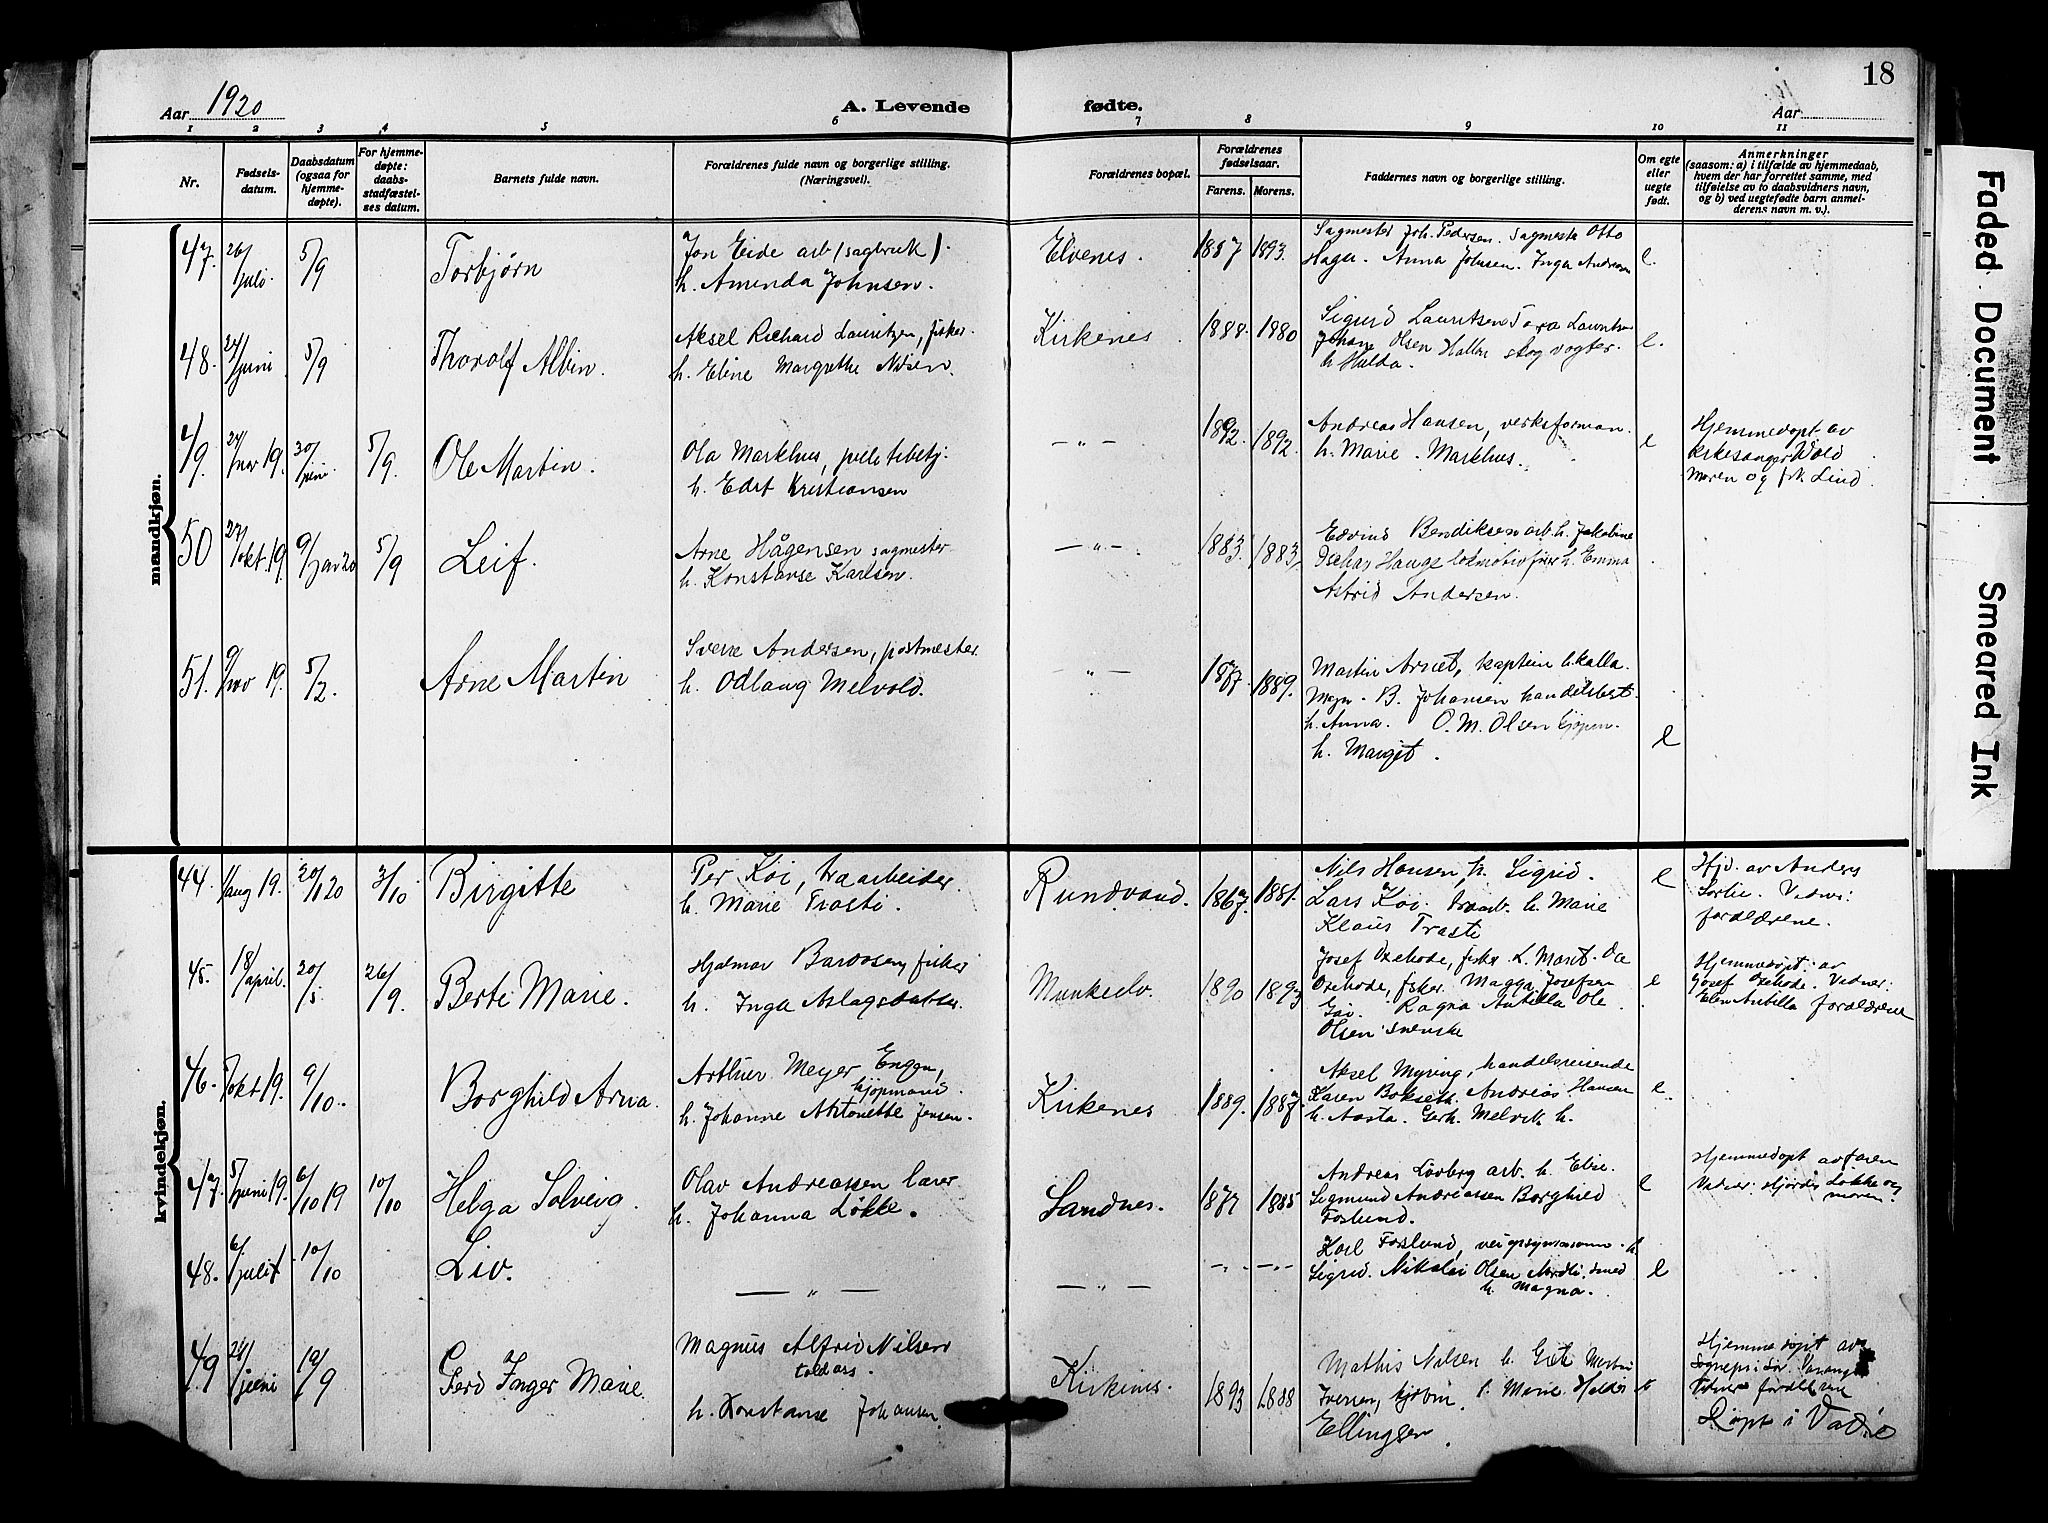 18
Aar 1920
A. Levende
fødte.
Aar
1 2 3 4 5 6 7 8 9 10 11
Nr.
Fødsels-
datum.
Daabsdatum
(ogsaa for
hjemme-
døpte).
For hjemme-
døpte:
daabs-
stadfæstel-
ses datum.
Barnets fulde navn.
Forældrenes fulde navn og borgerlige stilling.
(Næringsvei).
Forældrenes bopæl.
Forældrenes
fødselsaar.
Farens. Morens.
Faddernes navn og borgerlige stilling.
Om egte
eller
uegte
født.
Anmerkninger
(saasom: a) i tilfælde av hjemmedaab,
hvem der har forrettet samme, med
tilføielse av to daabsvidners navn,
og b) ved uegtefødte barn anmel-
derens navn m. v.).
mandkjøn.
47. 26/juli. 5/9
Torbjørn
Jon Eide arb (sagbruk).
h. Aminda Johnsen.
Elvenes.
1887 1893.
Sagmester Joh. Pedersen. Sagmester Otto
Hagen. Anna Johnsen. Inga Andreasen
e.
48. 24/juni 5/9
Thorolf Albin.
Aksel Richard Lauritzen, fisker.
h. Eline Margrethe Nilsen.
Kirkenes
1888. 1880
Sigurd Lauritsen Tora
Johan Olsen skogvogter.
h Hulda.
e.
49. 24/nov 19. 30/ 5/9.
Ole Martin.
Ola Markhus,
h. Edit Kristiansen
— " —
1892. 1892.
Andreas Hansen, verksforman.
h. Marie. Markhus.
e
Hjemmedøpt av
kirkesanger Wold
moren og frk Lind
50 27/okt. 19. 9/jan 20 5/9
Leif.
Arne Hågensen sagmester
h. Konstanse Karlsen.
— " —.
1883. 1883,
Edvind Bendiksen arb. h. Jakobine
Oschar Hauge lokomotivfører h. Emma
Astrid Andersen.
51. 9/nov 19. 5/2.
Arne Martin
Sverre Andersen, postmester
h. Odlaug Melvold.
— " —
1877. 1889.
Martin kaptein h. Kalla.
B. Johansen handelsbest.
h. Anna. O. M. Olsen kjøpm.
h. Margit.
e
kvindekjøn.
44. /aug 19. 20/1 20 3/10
Birgitte
Per Koi, traarbeider.
h. Marie Trasti.
Rundvand.
1867. 1881.
Nils Hansen, h. Sigrid.
Lars Koi. traarb. h. Marie
Klaus Trasti
e
Hjd. av Anders
Sortie. Vidner:
forældrene.
45. 18/april. 20/5 26/9.
Berte Marie.
Hjalmar fisker
h. Inga Aslagsdatter.
Munkelv.
1890 1893
Josef fisker h. Marit. Ole
fisker. Magga Josefsen
Ragna Antilla Ole
Olsen svenske
e
Hjemmedøpt: av
Josef Vidner:
Elen Antilla forældrene
46. 7/okt 19. 9/10.
Borghild Arna.
Arthur Meyer Enggn,
kjøpmand.
h. Johanne Antonette Jensen.
Kirkenes
1889. 1887.
Aksel Myring, handelsreisende
Karen Andreas Hansen
h. Aasta. Gerh. Melvik h.
e.
47. 5/juni 19. 6/10 19 10/10
Helga Solveig.
Olav Andreassen lærer
h. Johanna Løkke.
Sandnes.
1877 1885
Andreas Lovberg arb. h. Elise.
Sigmund Andreassen Borghild
Foslund.
e
Hjemmedøpt av faren
Vidner: Hjørdis Løkke og
moren.
48. 6/juli 10/10
Liv.
— " —
— " —
—. —.
Karl Foslund, h
Sigrid. Nikolai Olsen smed
h. Magna.
e
49 24/juni 19/9
Gerd Inger Marie.
Magnus Alfrid Nilsen
toldass.
h. Konstanse Johansen
Kirkenes.
1893 1888
Mathis Nilsen h.
Iversen, h. Marie
Ellingsen.
Hjemmedøpt av
Sognepr i Sør Varanger
Vidner forældrene
Døpt i Vadsø
Faded Document
Smeared Ink